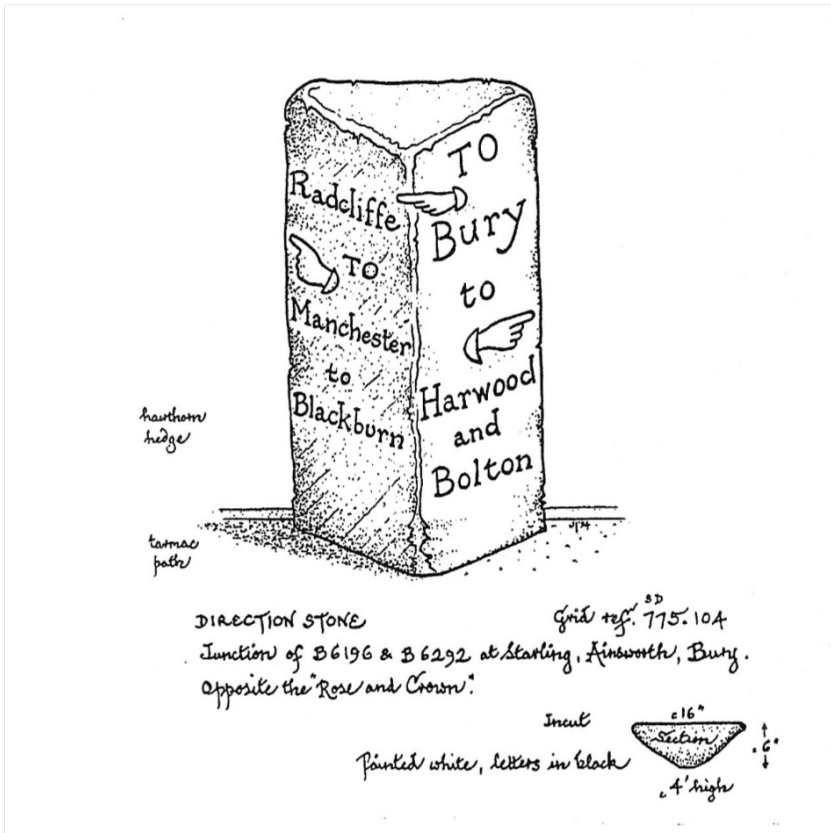 Radcliffe
TO
Manchester
to
Blackburn
TO
Bury
to
Harwood
and
Bolton
hawthorn
hedge
tarmac
path
DIRECTION STONE
Grid ref. SD 775.104
Junction of B6196 & B6292 at Starling, Ainsworth, Bury.
Opposite the "Rose and Crown".
Incut
Painted white, letters in black
c16"
Section
c6"
c4' high